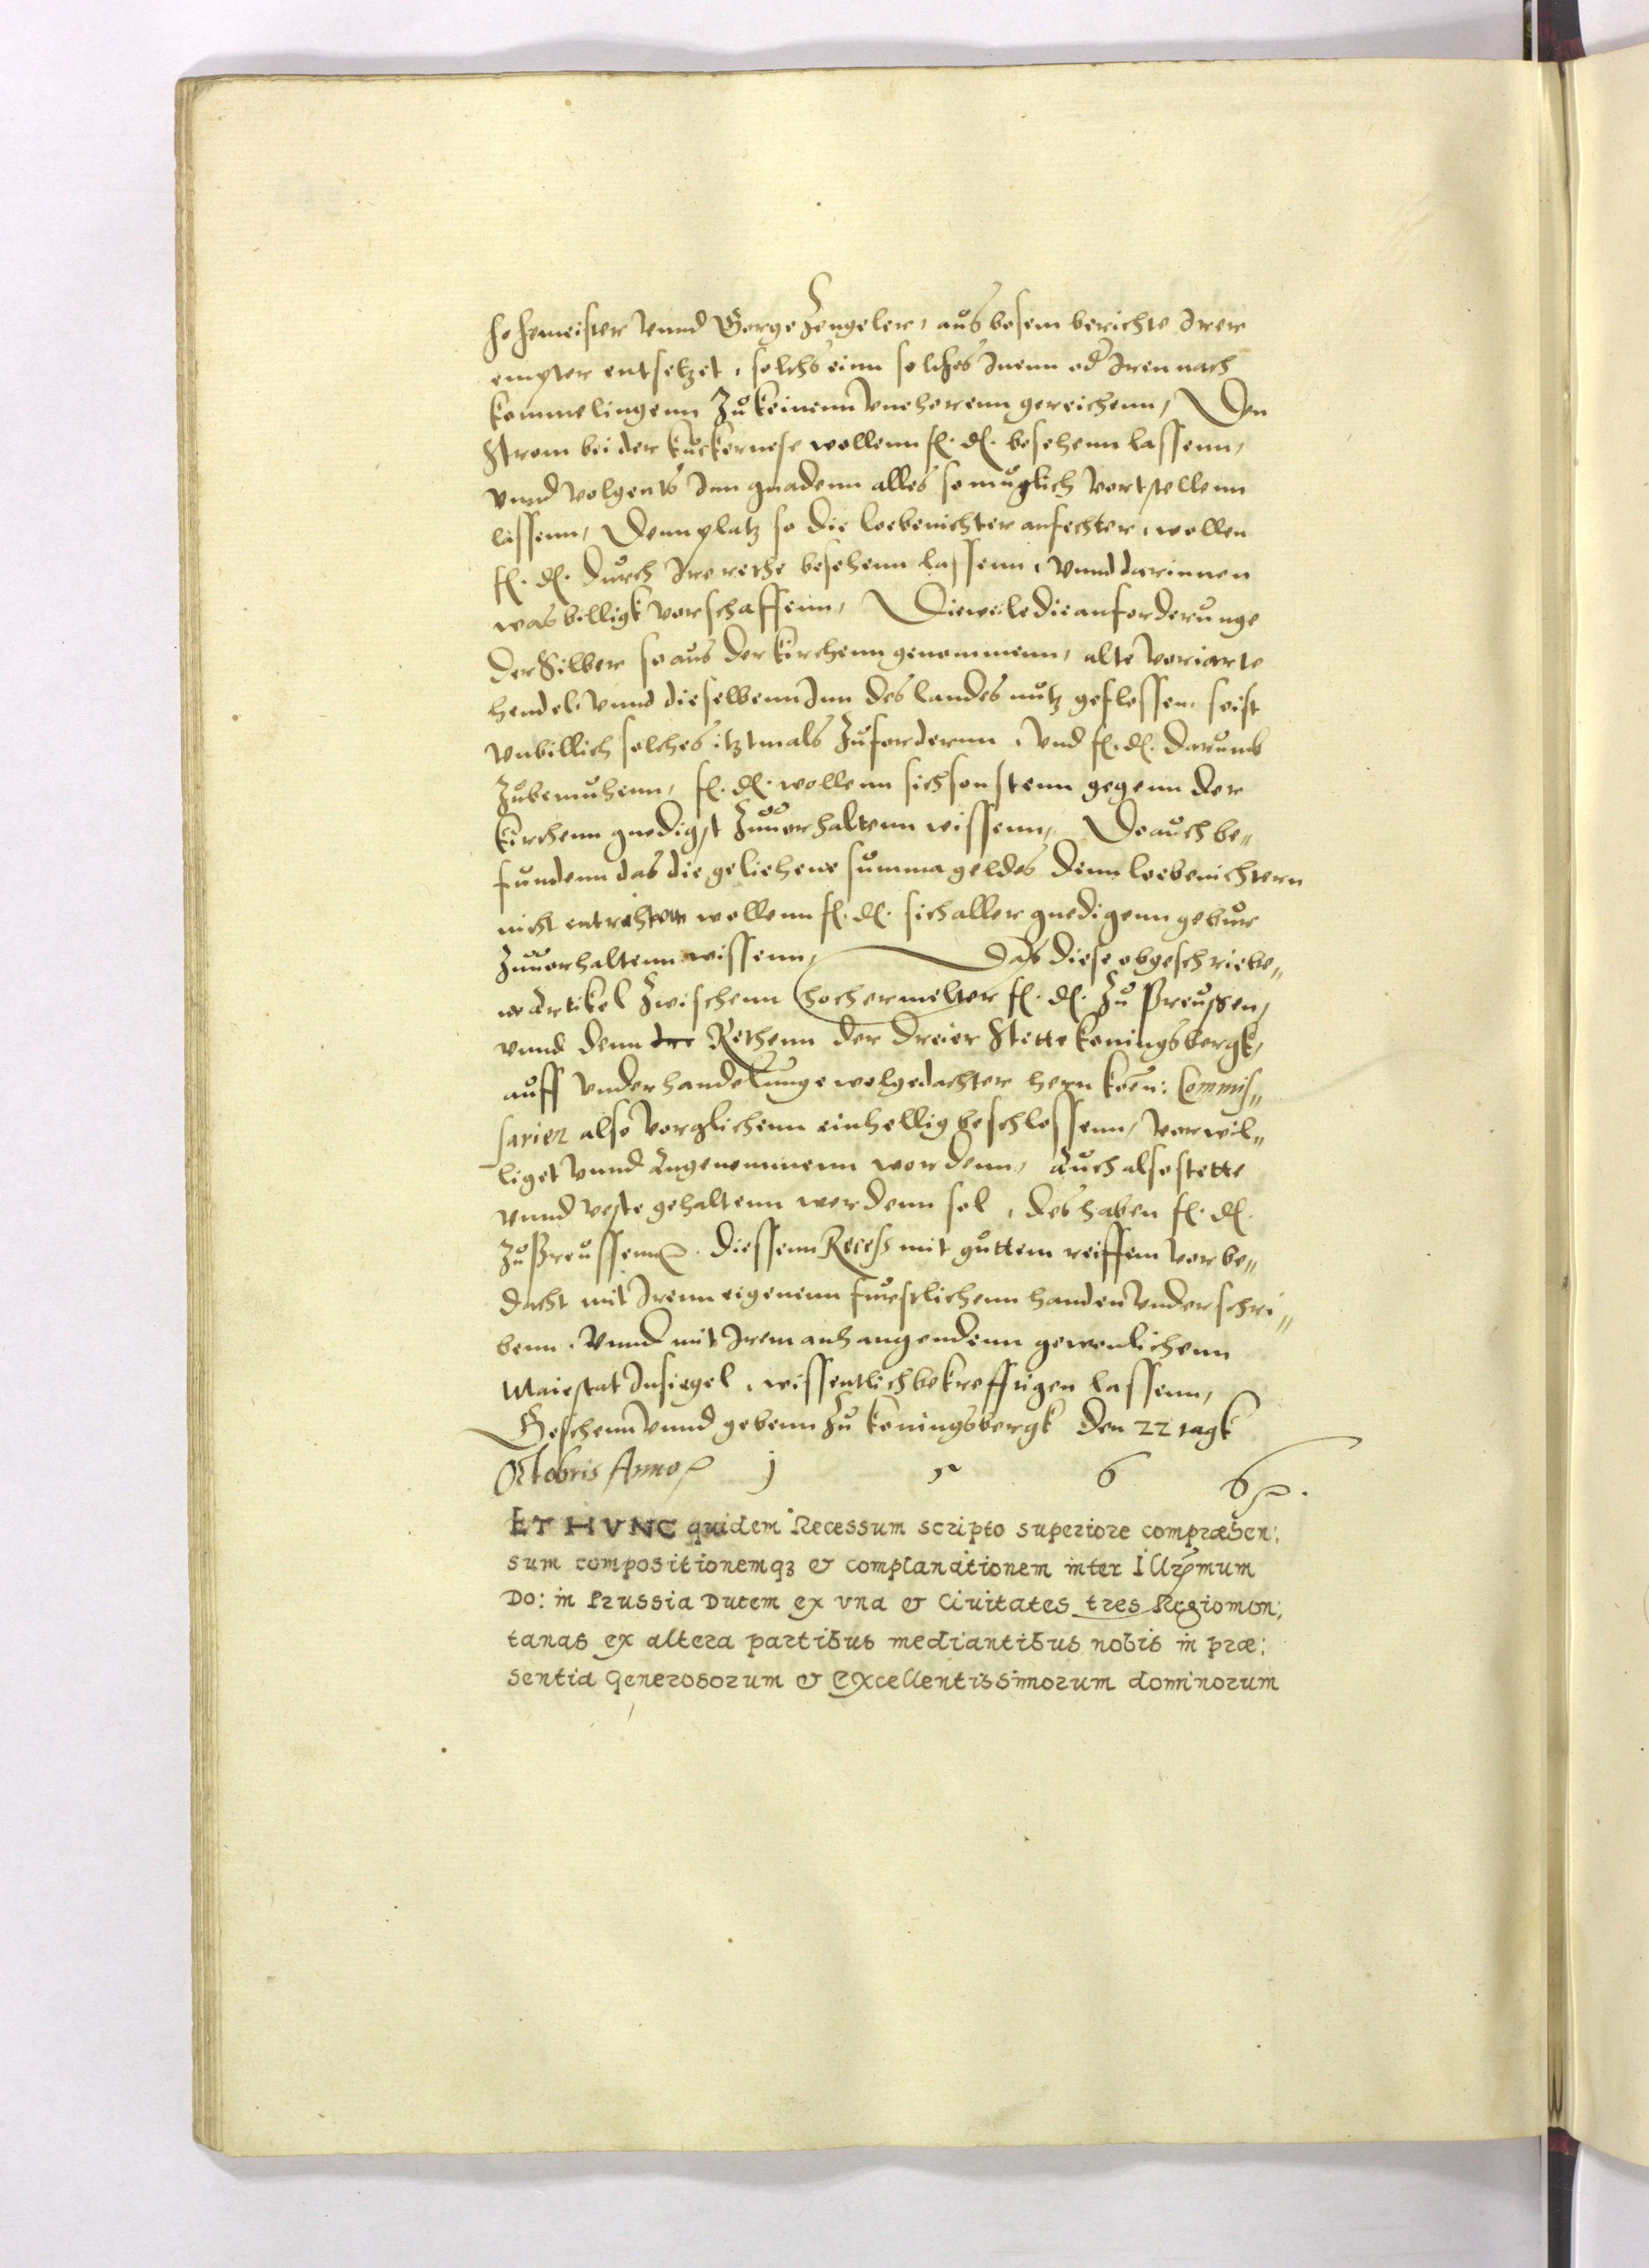 hofemeister vnnd George Zengeler, aus bosem berichte Irer
empter entsetzet, solchs einn solches Inenn od Iren nach
kommelingenn Zu keinenn vneherenn gereichenn, Den
Strom bei der Kuckernese wollenn fl. dl. besehenn lassenn,
vnnd volgents Inn gnadenn alles so muglich vortstellenn
lassenn, Denn platz so die Loebenichter anfechten, wollen
fl. dl. durch Ire rethe besehenn lassenn, vnnd darinnen
was billigk vorschaffenn, Dieweile die anforderunge
der Silber so aus der kirchenn genommenn, alte voriarte
hendel, vnnd dieselbenn Inn des landes nutz geflossen, so ist
vnbillich solches itztmals Zufordernn, vnd fl. dl. darumb
Zubemuhenn, fl. dl. wollenn sich sonstenn gegenn der
kirchenn gnedigst Zuuorhaltenn wissenn, Do auch be„
fundenn das die geliehene summa geldes denn Loebenichtern
nicht entrichtet wollenn fl. dl. sich aller gnedigenn gebur
Zuuorhaltenn wissenn, Das diese obgeschriebe„
ne Artikel Zwischenn hochermelter fl. dl. Zu Preussen,
vnnd denn dre Rethenn der dreier Stette Koningsbergk,
auff vnderhandelunge wolgedachter hern Koen: Commis„
sarien also vorglichenn einhellig beschlossenn, vorwil„
liget vnnd Angenommenn wordenn, Auch also stette
vnnd veste gehaltenn werdenn sol, des haben fl. dl.
Zu Preussenn. diessenn Recess mit guttem reiffem vorbe„
dacht mit Irenn eigenenn furstlichenn handen vnderschri„
benn, vnnd mit Irem anhangendenn gewonlichenn
Maiestat Insiegel, wissentlich bekrefftigen lassenn,
Geschenn vnnd gebenn Zu Koningsbergk den 22 tagk
Octobris Anno 1 5 6 6.
ET HVNC quidem Recessum scripto superiore compræhen:
sum compositionemqʒ & complanationem inter Illr̃mum
Do: in Prussia Ducem ex vna & Ciuitates tres Regiomon:
tanas ex altera partibus mediantibus nobis in præ:
sentia Generosorum & Excellentissimorum dominorum